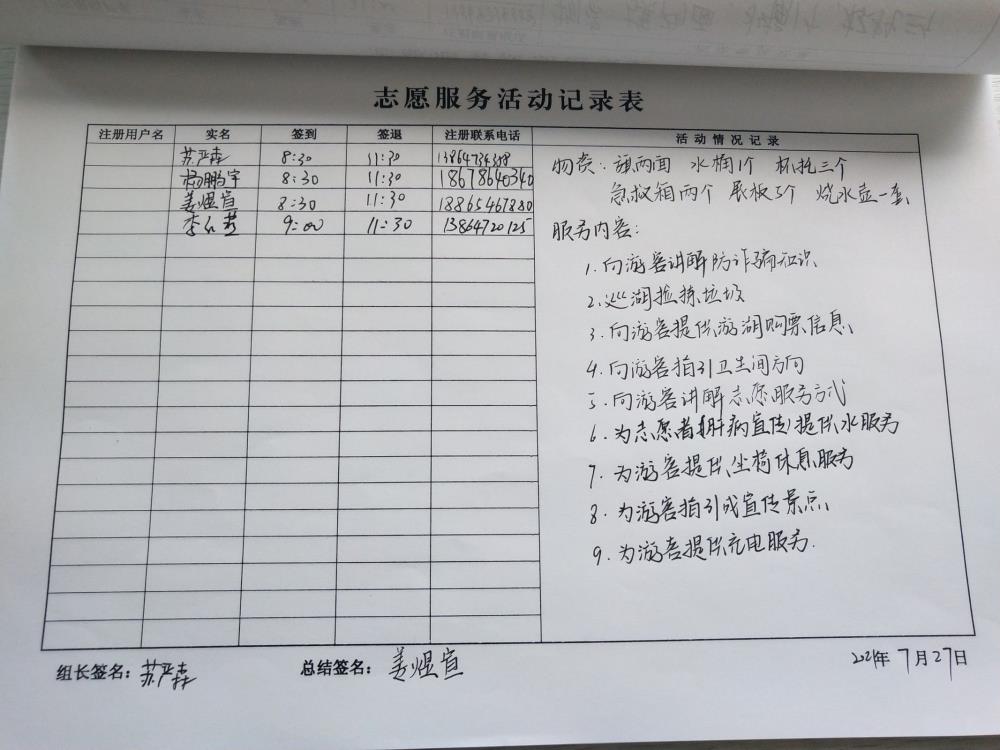 志愿服务活动记录表
注册用户名 实名 签到 签退 注册联系电话 活动情况记录
苏严森 8:30 11:30
杨鹏宇 8:30 11:30 18678640340
姜煜宣 8:30 11:30 18865467880
李 9:00 11:30 13864720125
物类: 旗两面 水桶1个 杯托三个
急救箱两个 展板5个 烧水壶一套
服务内容:
1.向游客讲解防诈骗知识
2.巡湖捡拣垃圾
3.向游客提供游湖购票信息
4.向游客指引卫生间方向
5.向游客讲解志愿服务方式
6.为志愿者(肝病宣传)提供水服务
7.为游客提供坐椅休息服务
8.为游客指引或宣传景点
9.为游客提供充电服务.
组长签名: 苏严森 总结签名: 姜煜宣 2021年7月27日